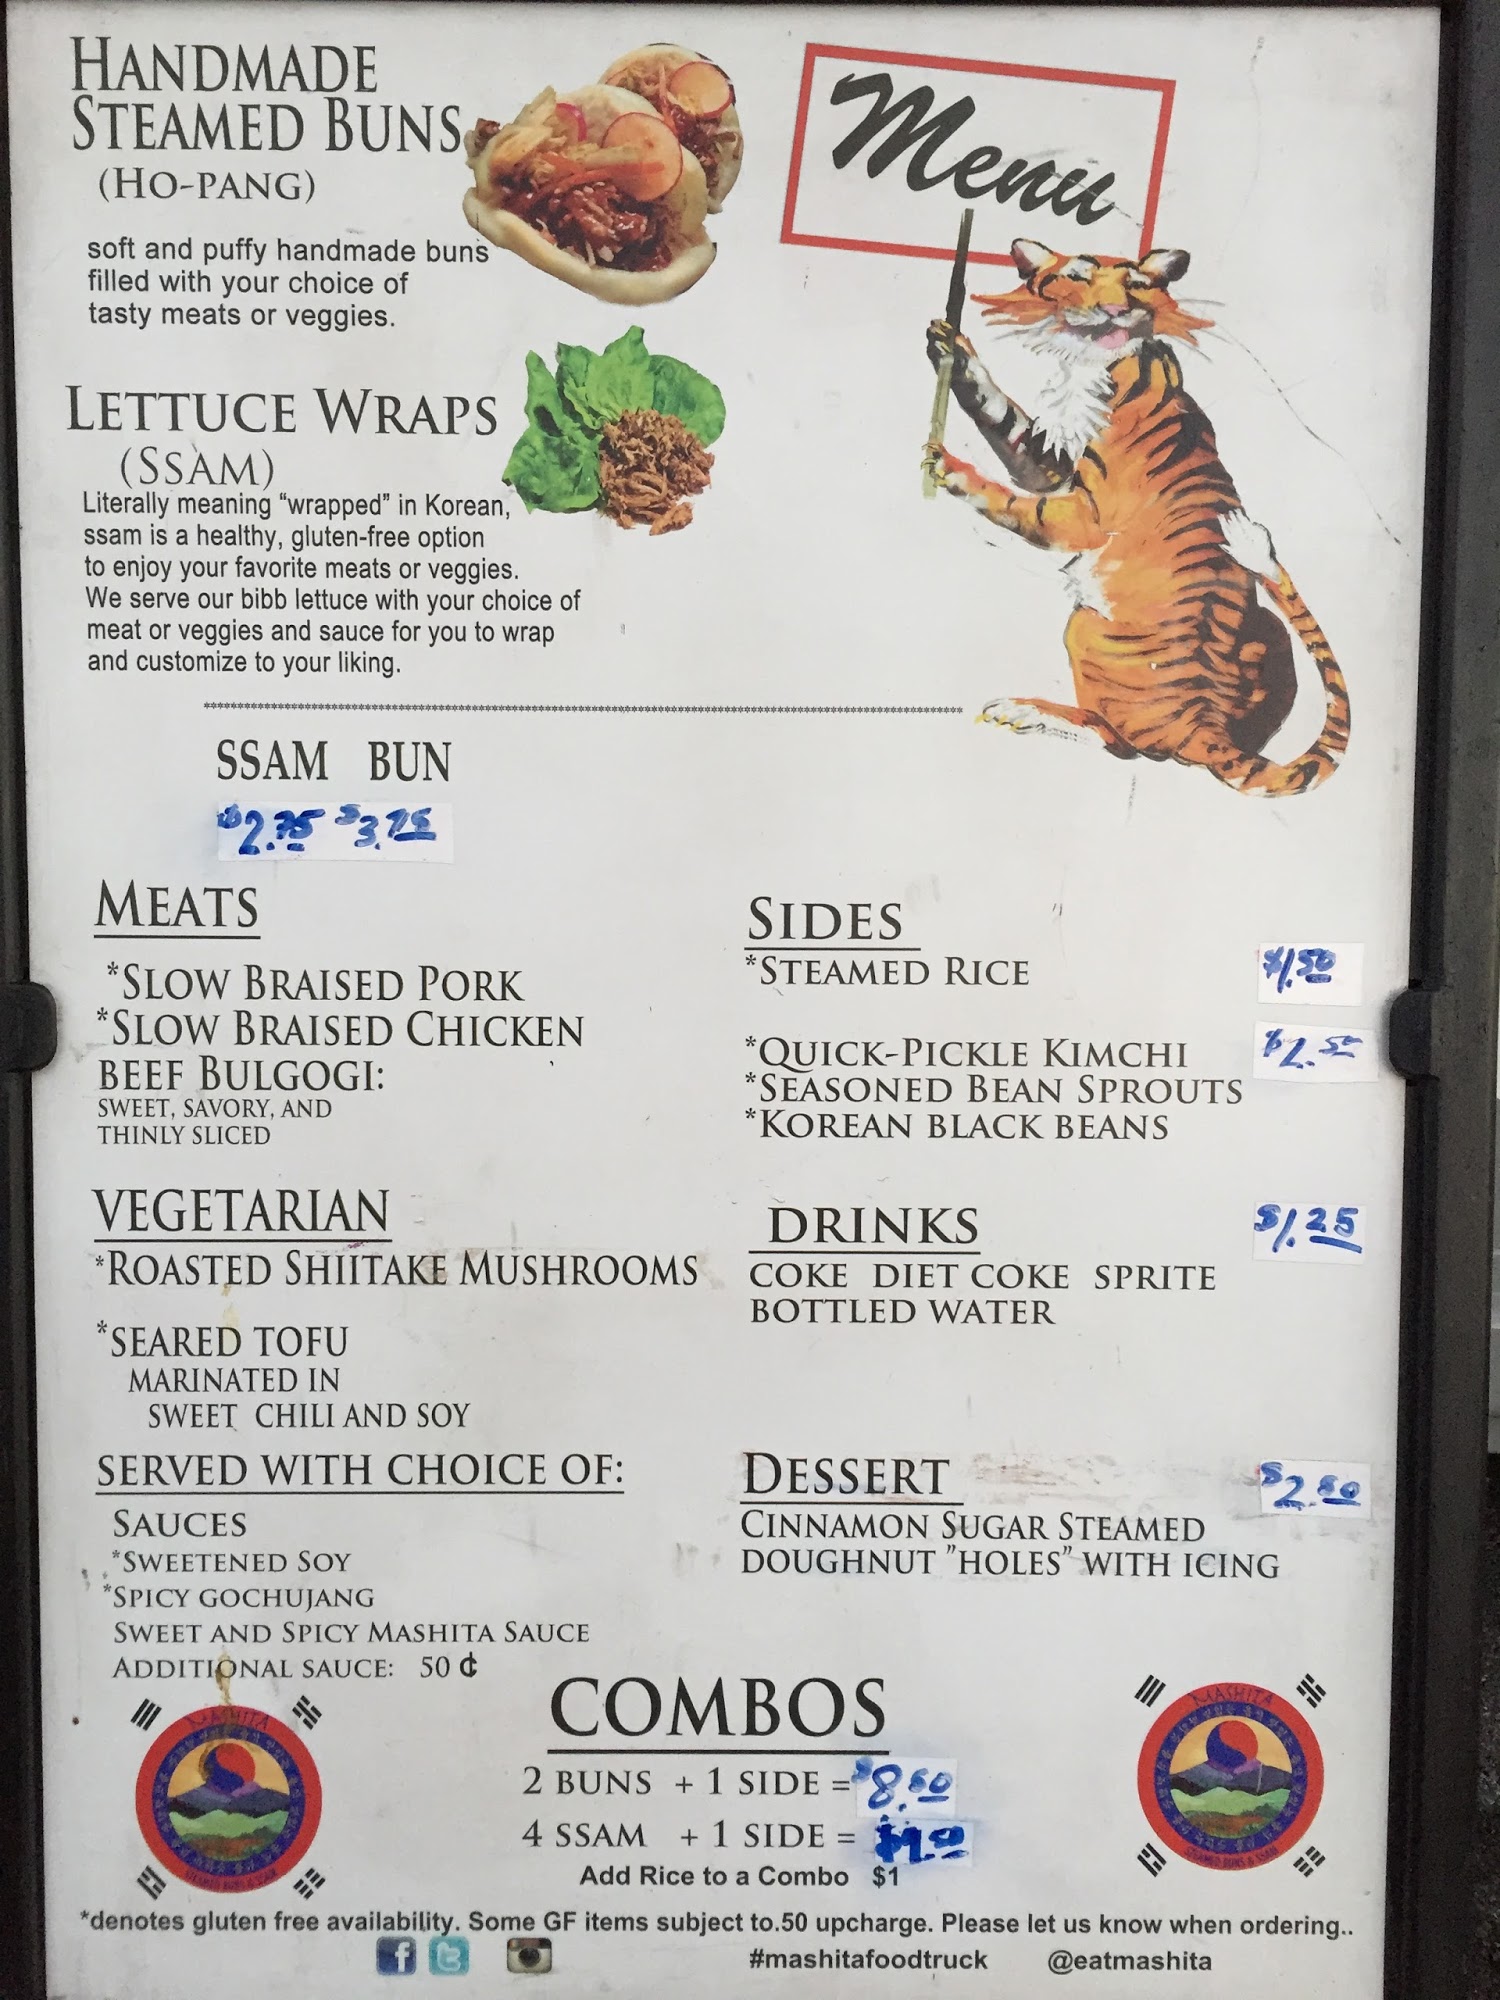 HANDMADE
STEAMED BUNS
(HO-PANG)
soft and puffy handmade buns
filled with your choice of
tasty meats or veggies.
Menu
LETTUCE WRAPS
(SSAM)
Literally meaning “wrapped” in Korean,
ssam is a healthy, gluten-free option
to enjoy your favorite meats or veggies.
We serve our bibb lettuce with your choice of
meat or veggies and sauce for you to wrap
and customize to your liking.
SSAM BUN
$2.75 $3.75
MEATS
*SLOW BRAISED PORK
*SLOW BRAISED CHICKEN
BEEF BULGOGI:
SWEET, SAVORY, AND
THINLY SLICED
VEGETARIAN
*ROASTED SHIITAKE MUSHROOMS
*SEARED TOFU
MARINATED IN
SWEET CHILI AND SOY
SERVED WITH CHOICE OF:
SAUCES
*SWEETENED SOY
*SPICY GOCHUJANG
SWEET AND SPICY MASHITA SAUCE
ADDITIONAL SAUCE: 50 ¢
SIDES
*STEAMED RICE $1.50
*QUICK-PICKLE KIMCHI $2.50
*SEASONED BEAN SPROUTS
*KOREAN BLACK BEANS
DRINKS $1.25
COKE DIET COKE SPRITE
BOTTLED WATER
DESSERT $2.50
CINNAMON SUGAR STEAMED
DOUGHNUT ”HOLES” WITH ICING
COMBOS
2 BUNS + 1 SIDE = $8.50
4 SSAM + 1 SIDE =
Add Rice to a Combo $1
MASHITA
STEAMED BUNS & SSAM
MASHITA
STEAMED BUNS & SSAM
*denotes gluten free availability. Some GF items subject to.50 upcharge. Please let us know when ordering..
#mashitafoodtruck @eatmashita